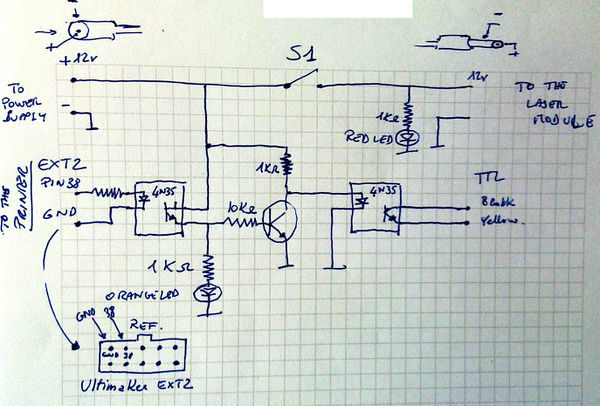 -
S1
-
+
+12v
12v
-
TO
POWER
SUPPLY
TO THE
LASER
MODULE
1KΩ
RED LED
1KΩ
EXT2
PIN38
GND
TO THE
PRINTER
4N35
4N35
10KΩ
TTL
Black
Yellow.
1KΩ
ORANGE LED
GND 38
REF.
GND 38
Ultimaker EXT2